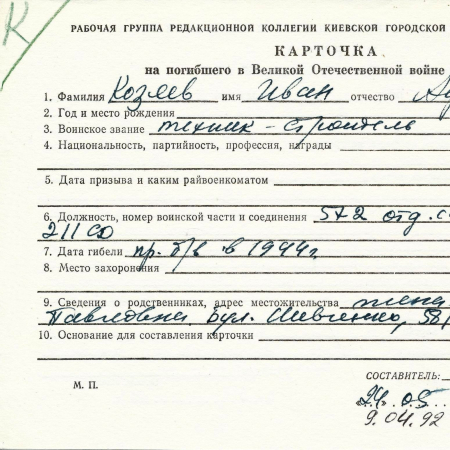 РАБОЧАЯ ГРУППА РЕДАКЦИОННОЙ КОЛЛЕГИИ КИЕВСКОЙ ГОРОДСКОЙ
КАРТОЧКА
на погибшего в Великой Отечественной войне
1. Фамилия Козлев имя Иван отчество
2. Год и место рождения
3. Воинское звание техник-строитель
4. Национальность, партийность, профессия, награды
5. Дата призыва и каким райвоенкоматом
6. Должность, номер воинской части и соединения 572 отд. с
211 СД
7. Дата гибели пр. б/в в 1944г.
8. Место захоронения
9. Сведения о родственниках, адрес местожительства жена
Павловна. Бул. Шевченко, 58/
10. Основание для составления карточки
СОСТАВИТЕЛЬ:
М. П.
«24» 05
9.04.92